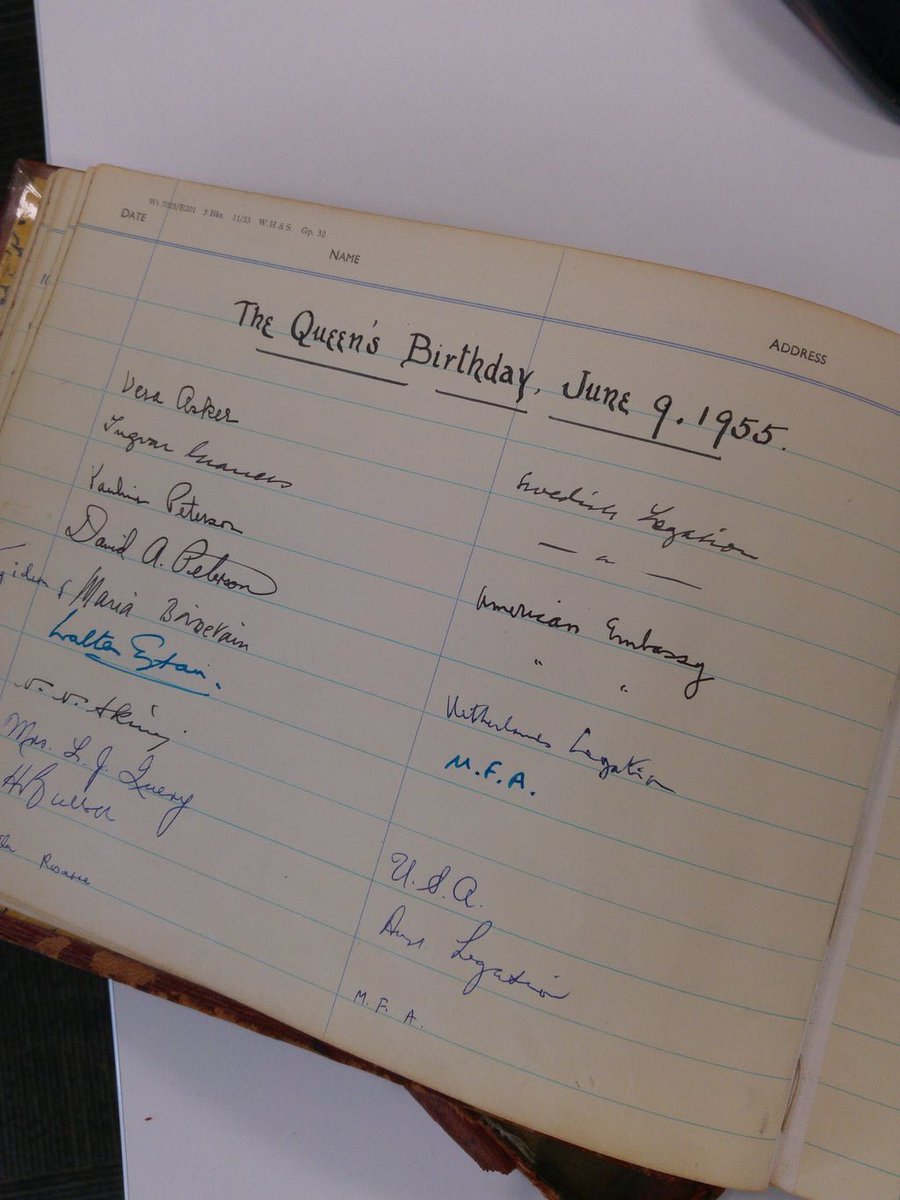 Wt.7021/E201 5 Bks. 11/53 W. H & S. Gp. 32
DATE NAME ADDRESS
The Queen's Birthday, June 9. 1955.
Vera Asker Swedish Legation
Ingvar — " —
Pauline Peterson American Embassy
David A. Peterson " "
Maria Boissevain Netherlands Legation
Walter Eytan. M.F.A.
Mrs. L. J. Query U.S.A.
Legation
M. F. A.